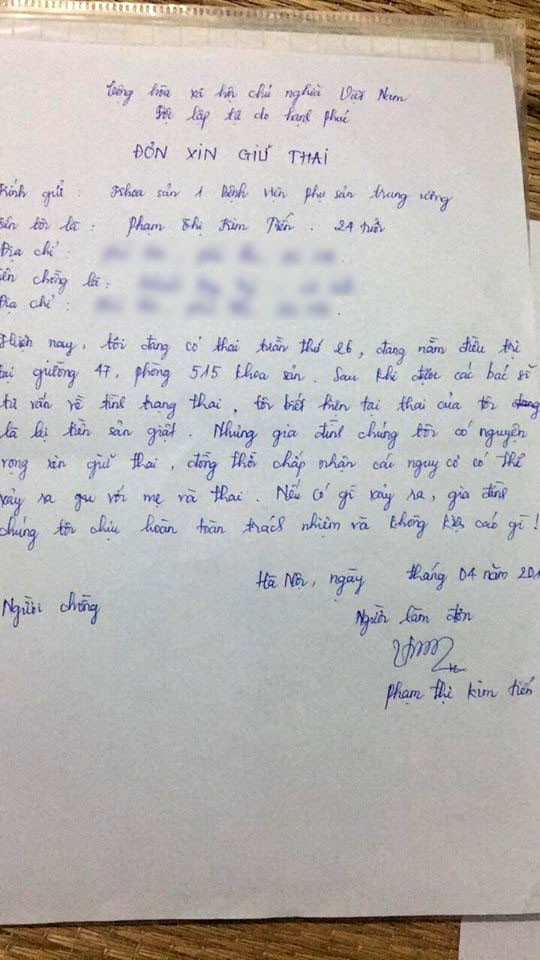 Cộng hòa xã hội chủ nghĩa Việt Nam
Độc lập tự do hạnh phúc
ĐƠN XIN GIỮ THAI
Kính gửi : Khoa sản 1 bệnh viện phụ sản trung ương
tên tôi là : Phạm Thị Kim Tiến . 24 tuổi
Địa chỉ :
tên chồng là :
Địa chỉ :
Hiện nay, tôi đang có thai tuần thứ 26, đang nằm điều trị
tại giường 47, phòng 515 khoa sản. Sau khi được các bác sĩ
tư vấn về tình trạng thai, tôi biết hiện tại thai của tôi đang
là bị tiền sản giật. Nhưng gia đình chúng tôi có nguyện
vọng xin giữ thai, đồng thời chấp nhận các nguy cơ có thể
xảy ra với mẹ và thai. Nếu có gì xảy ra, gia đình
chúng tôi chịu hoàn toàn trách nhiệm và không kiện cáo gì !
Hà Nội, ngày tháng 04 năm 201
Người chồng
Người làm đơn
Phạm Thị Kim Tiến